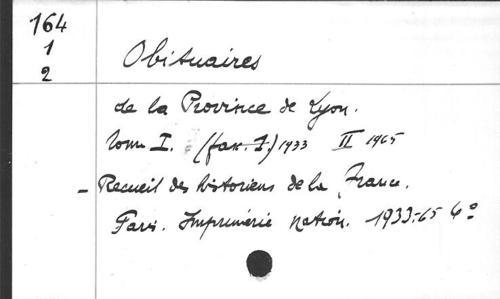 164
1
2
Obituaires
de la Province de Lyon.
Tome I. (fasc. 1) 1933 II 1965
- Recueil des historiens de la France.
Paris. Imprimerie Nation. 1933-65 4°